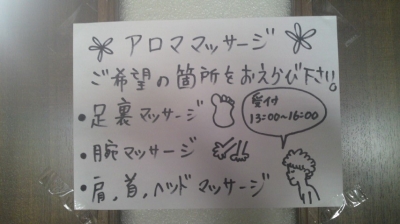 アロママッサージ
ご希望の箇所をおえらび下さい。
・足裏マッサージ
受付
13:00~16:00
・腕マッサージ
・肩,首,ヘッドマッサージ